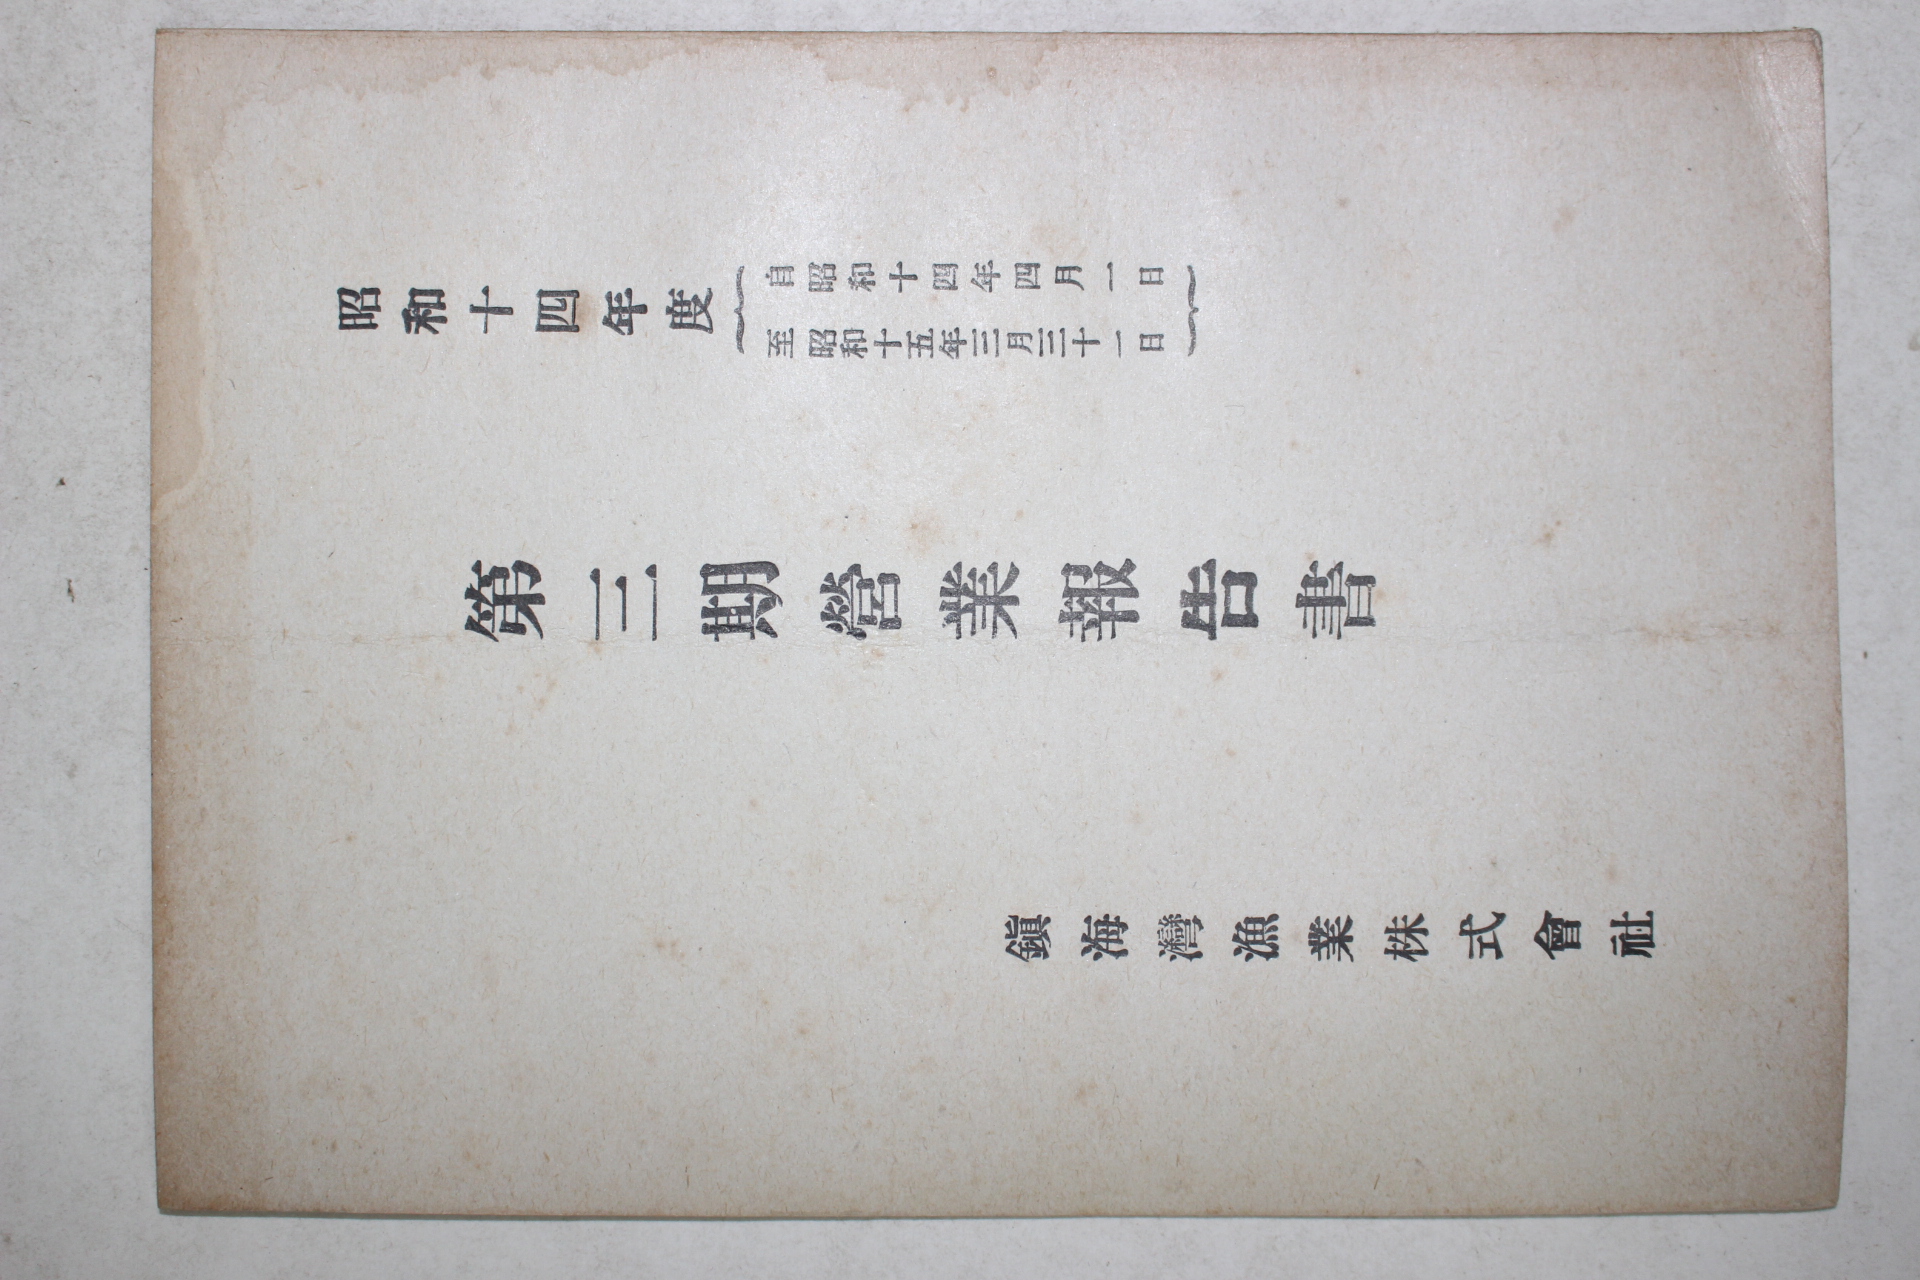 昭和十四年度
自昭和十四年四月一日
至昭和十五年三月三十一日
第三期營業報告書
鎭海灣漁業株式會社